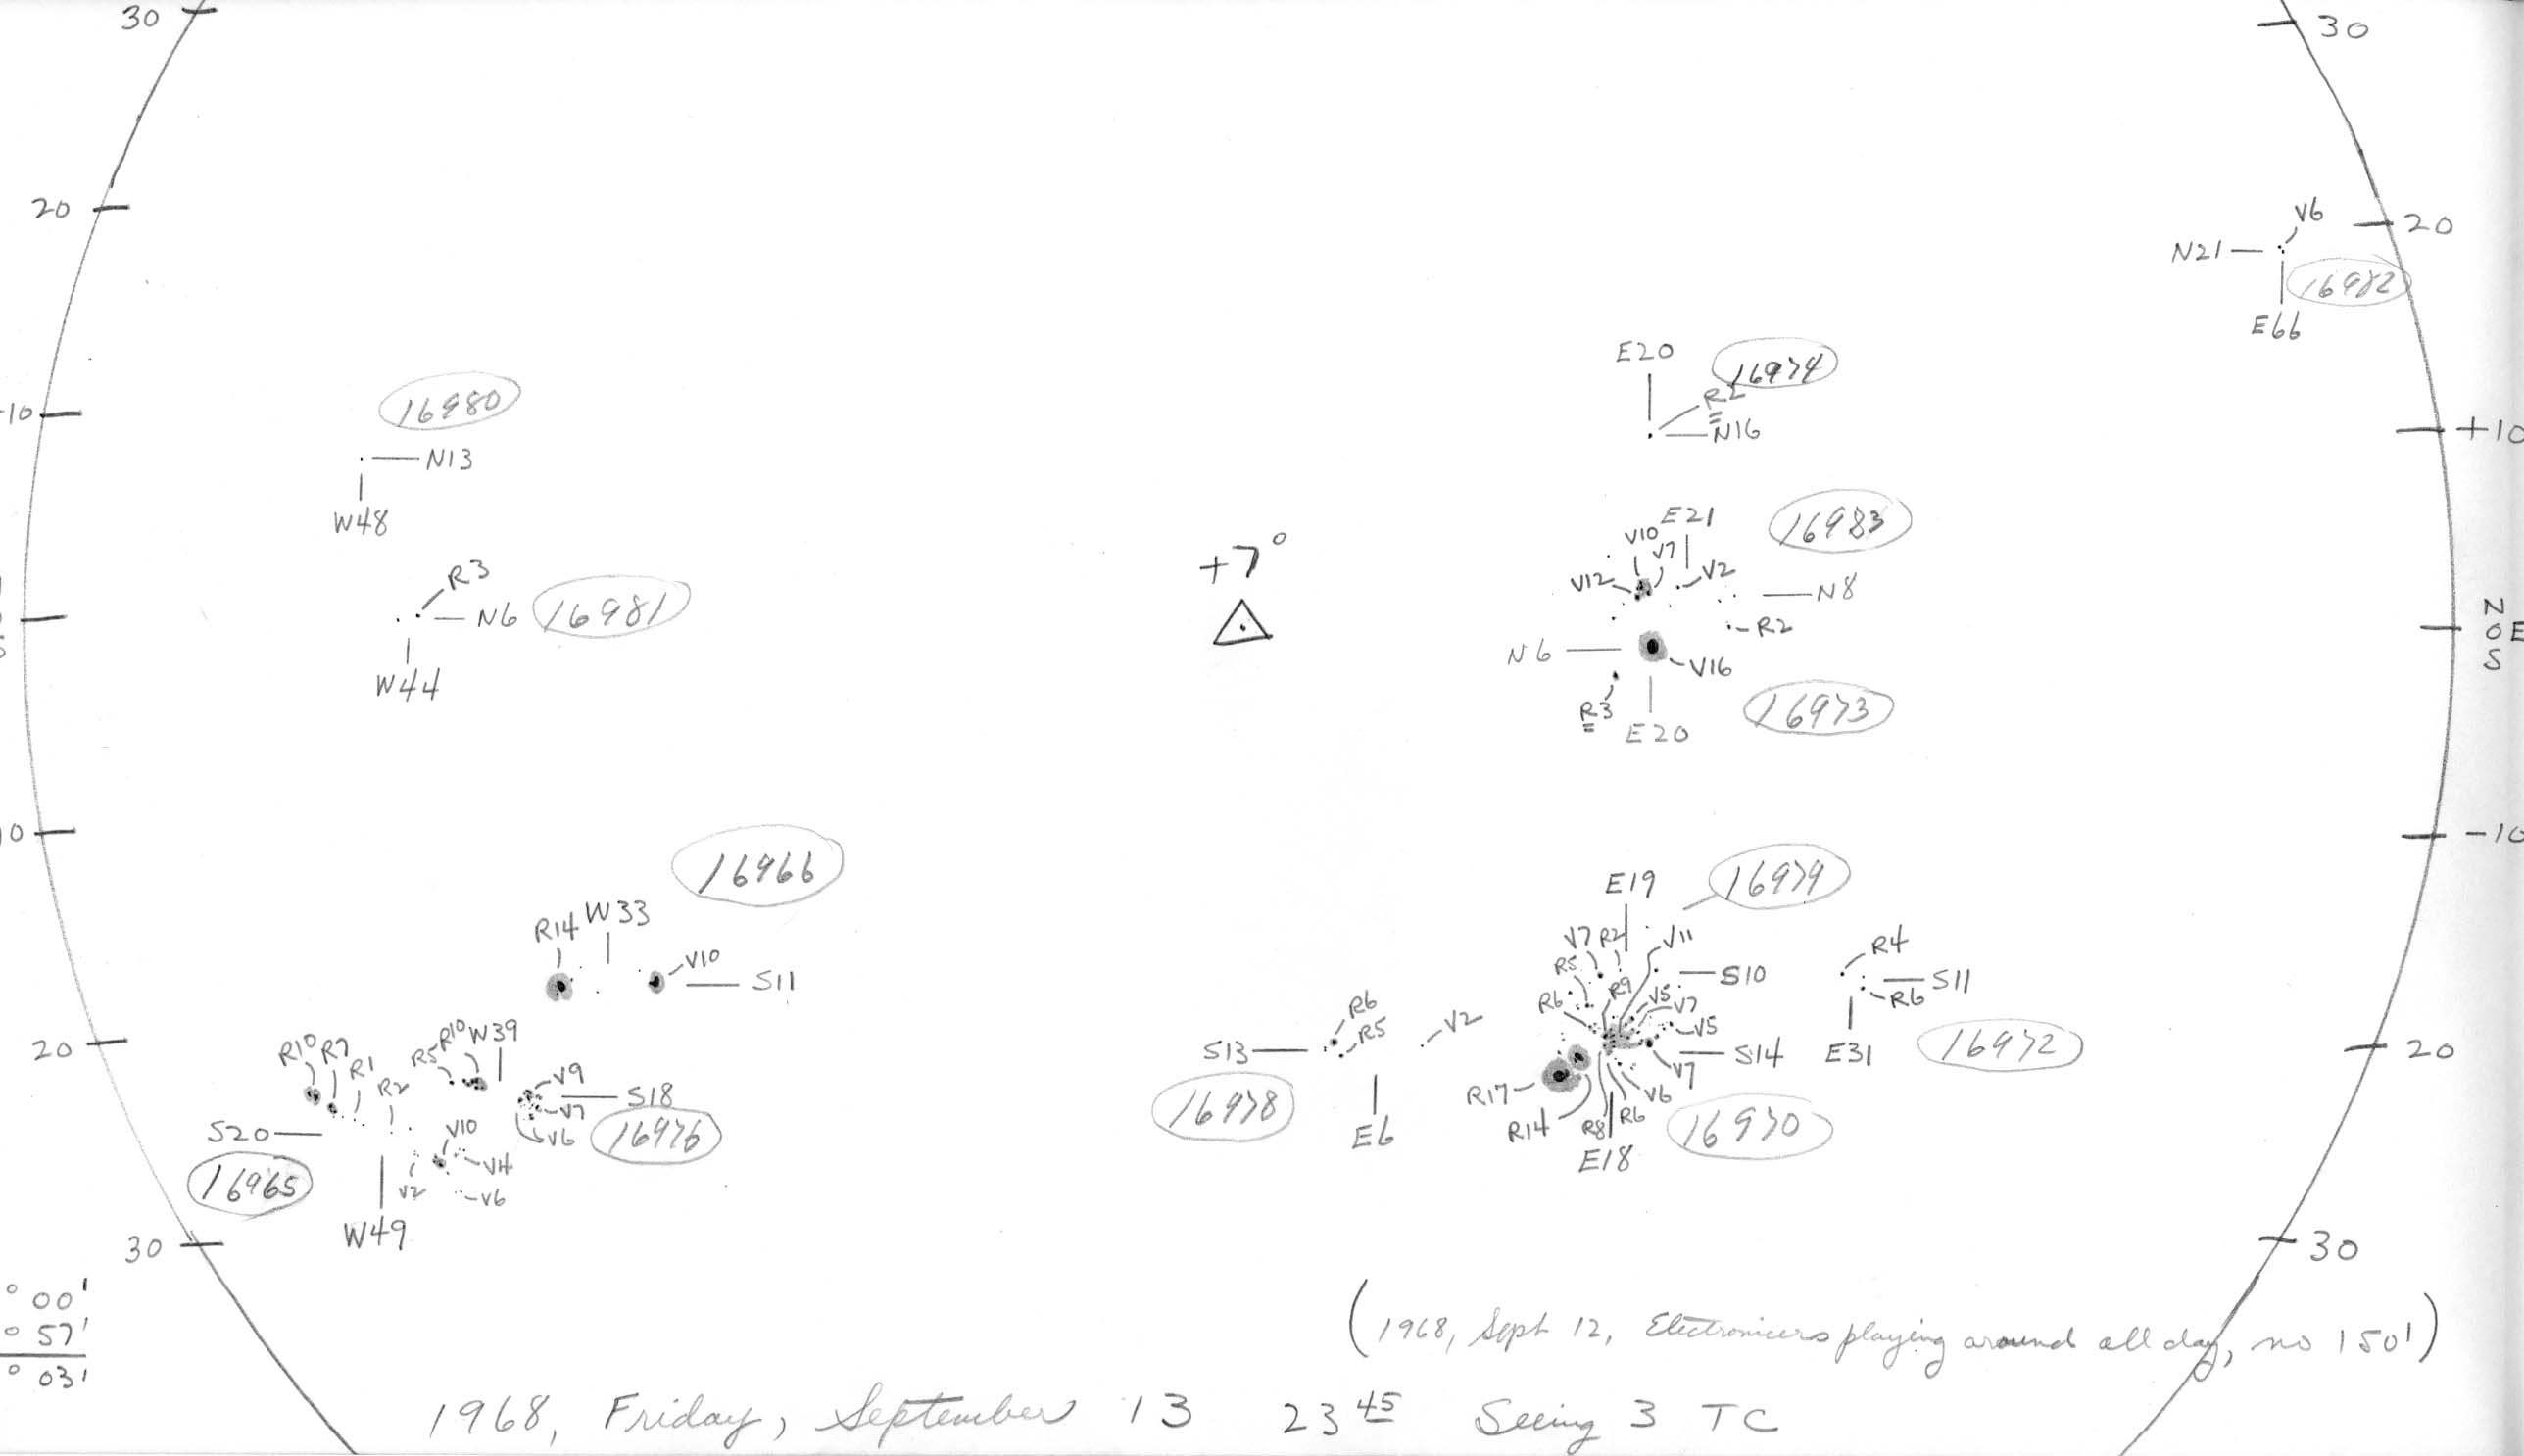 30
30
20
V6
20
N21
16982
E66
E20
16974
R2
N16
10
+10
16980
N13
W48
16983
E21
V10
V7
V2
V12
N8
+7°
R3
N6
16981
W44
N
0 E
S
R2
N6
V16
R3
E20
16973
0
-10
16966
R14
W33
V10
S11
16979
E19
V7
R2
V11
R5
S10
R6
R9
V5
V7
V5
R4
S11
R6
E31
16972
R6
R5
V2
S13
16978
E6
S14
V7
R17
V6
R14
R8
R6
E18
16970
20
20
R10
R7
R1
R2
R5
R10
W39
V9
S18
V7
V6
16976
S20
V10
V4
V2
V6
16965
W49
30
30
° 00'
° 57'
° 03'
(1968, Sept 12, Electronicers playing around all day, no 150')
1968, Friday, September 13 23 45 Seeing 3 TC